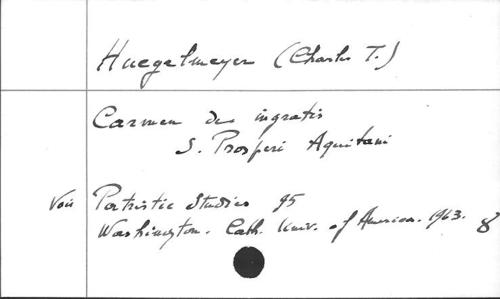 Huegelmeyer (Charles T.)
Carmen de ingratis
S. Prosperi Aquitani
Voir Patristic Studies 95
Washington. Cath. Univ. of America. 1963. 8